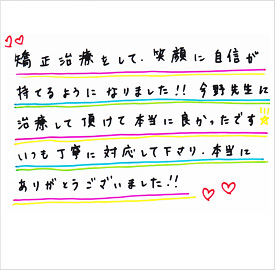 矯正治療をして、笑顔に自信が
持てるように なりました!! 今野先生に
治療して頂けて本当に良かったです
いつも丁寧に対応して下さり、本当に
ありがとうございました!!